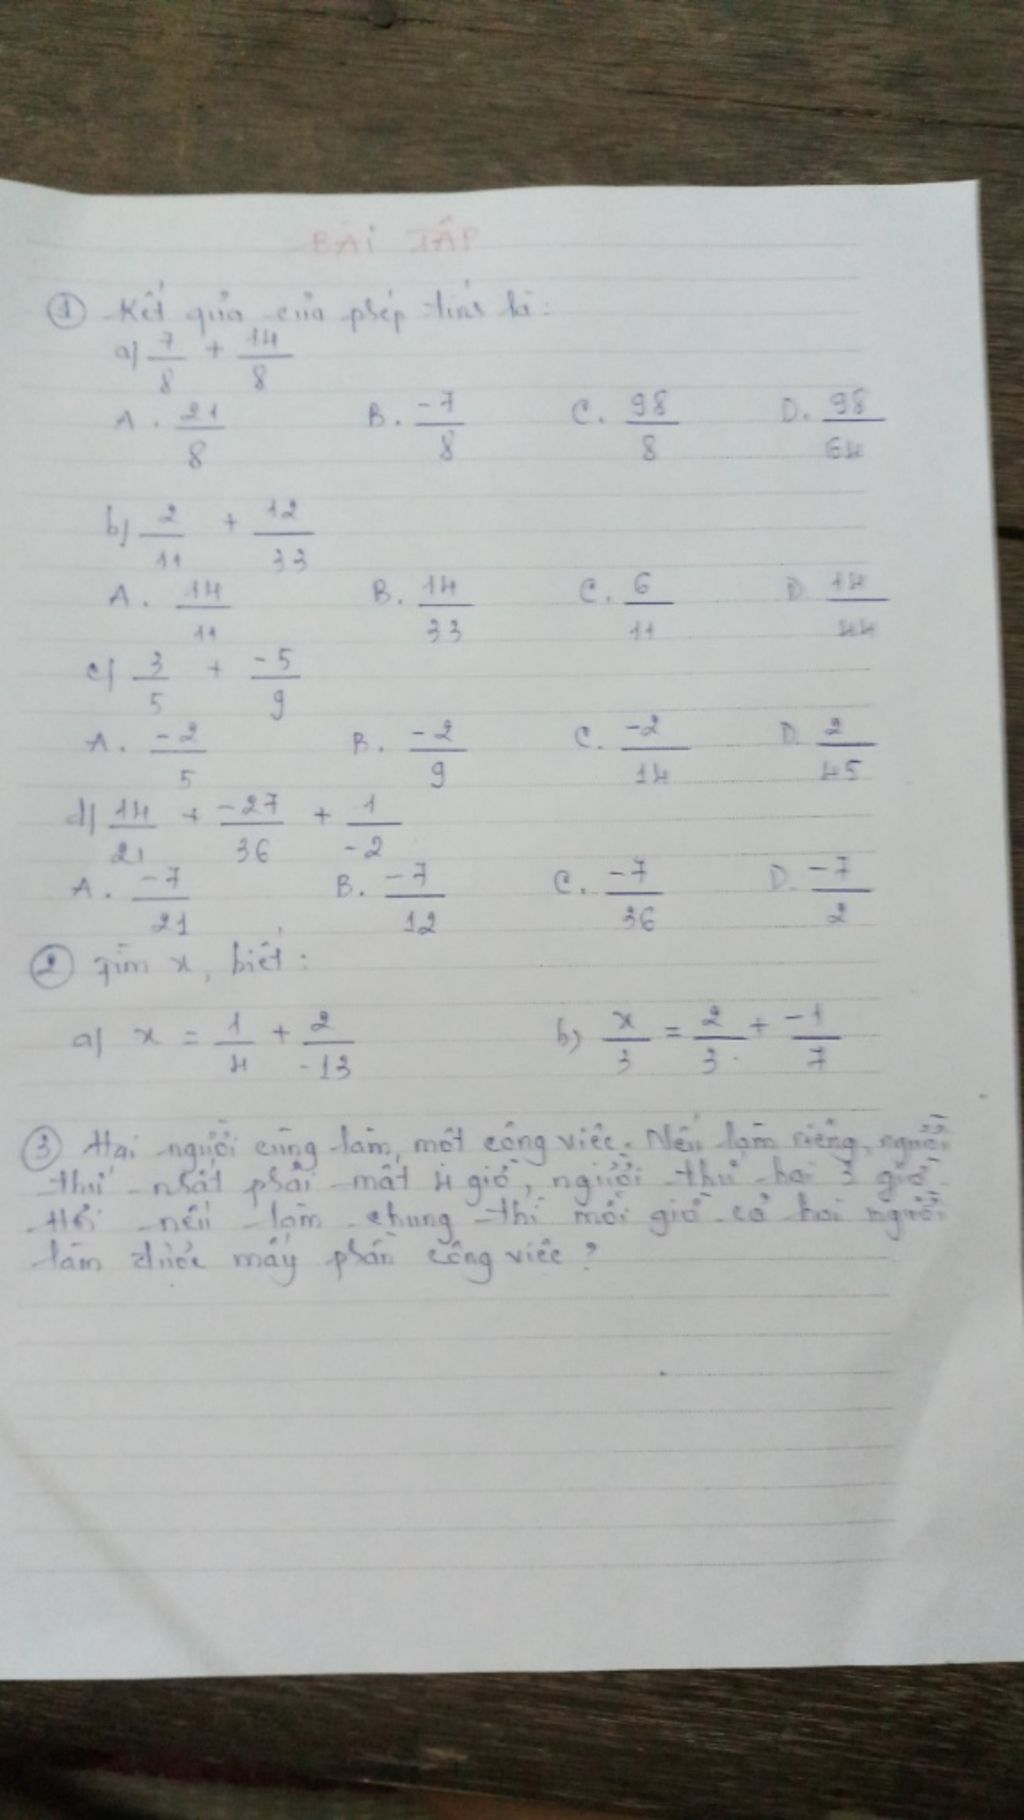 BÀI TẬP
① Kết quả của phép tính là:
a) 7/8 + 14/8
A. 21/8 B. -7/8 C. 98/8 D. 98/64
b) 2/11 + 12/33
A. 14/11 B. 14/33 C. 6/11 D. 14/44
c) 3/5 + -5/9
A. -2/5 B. -2/9 C. -2/14 D. 2/45
d) 14/21 + -27/36 + 1/-2
A. -7/21 B. -7/12 C. -7/36 D. -7/2
② Tìm x, biết:
a) x = 1/4 + 2/-13 b) x/3 = 2/3 + -1/7
③ Hai người cùng làm một công việc. Nếu làm riêng, người
thứ nhất phải mất 4 giờ, người thứ hai 3 giờ.
Hỏi nếu làm chung thì mỗi giờ cả hai người
làm được mấy phần công việc?